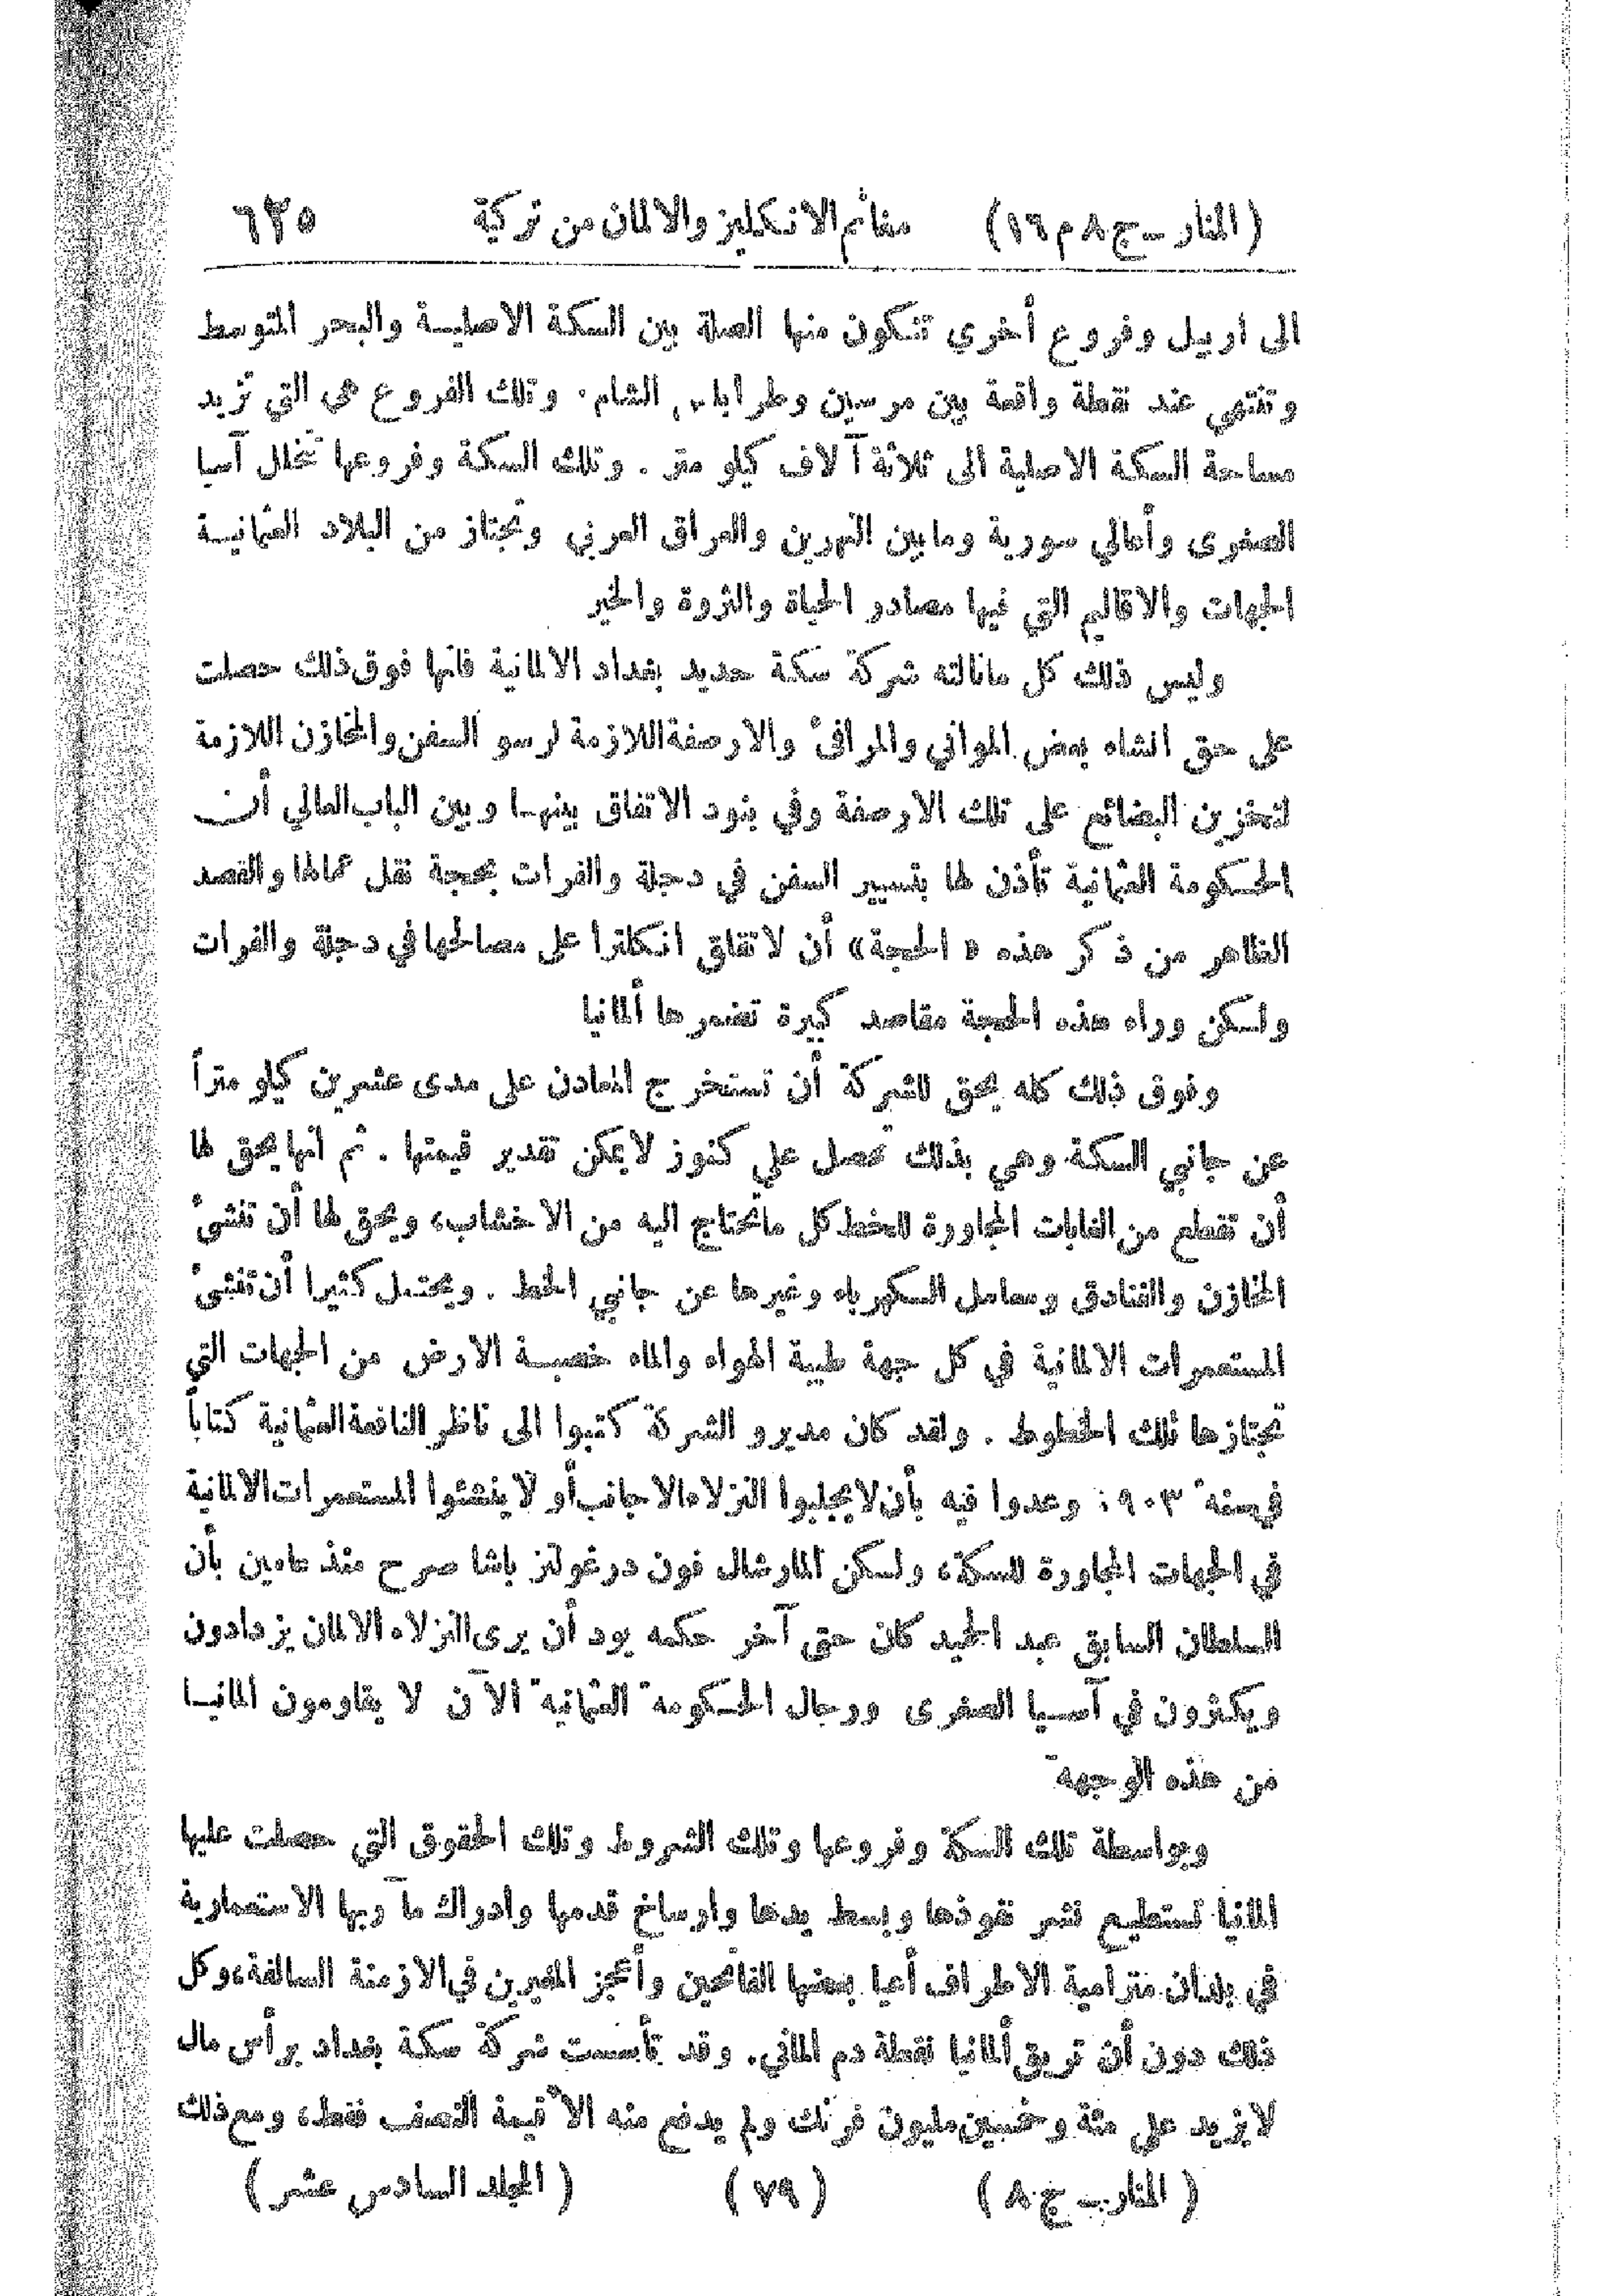 (المنار – ج ٨ م ١٦) مغانم الانكليز والالمان من تركية ٦٢٥
الى اربيل وفروع أخرى تتكون منها الصلة بين السكة الاصليـة والبحر المتوسط
وتنتهي عند نقطة واقعة بين مرسين وطرابلس الشام. وتلك الفروع هى التي تزيد
مساحة السكة الاصلية الى ثلاثة آلاف كيلو متر . وتلك السكة وفروعها تخلل آسيا
الصغرى وأعالي سورية ومابين النهرين والعراق العربي وتجتاز من البلاد العثمانيـة
الجهات والاقاليم التي فيها مصادر الحياة والثروة والخير
وليس ذلك كل مانالته شركة سكة حديد بغداد الالمانية فانها فوق ذلك حصلت
على حق انشاء بعض المواني والمرافئ والارصفة اللازمة لرسو السفن والمخازن اللازمة
لتخزين البضائع على تلك الارصفة وفي بنود الاتفاق بينهـا وبين الباب العالي أن
الحكومة العثمانية تأذن لها بتسيير السفن في دجلة والفرات بحجة نقل عمالها والقصد
الظاهر من ذكر هذه « الحجة» أن لاتقلق انكلترا على مصالحها في دجلة والفرات
ولكن وراء هذه الحجة مقاصد كبيرة تضمرها ألمانيا
وفوق ذلك كله يحق للشركة أن تستخرج المعادن على مدى عشرين كيلو متراً
عن جانبي السكة وهي بذلك تحصل علي كنوز لايمكن تقدير قيمتها . ثم انها يحق لها
أن تقطع من الغابات المجاورة للخط كل ماتحتاج اليه من الاخشاب، ويحق لها أن تنشئ
المخازن والفنادق ومعامل الكهرباء وغيرها عن جانبي الخط . ويحتمل كثيرا أن تنشئ
المستعمرات الالمانية في كل جهة طيبة الهواء والماء خصبـة الارض من الجهات التي
تجتازها تلك الخطوط . ولقد كان مديرو الشركة كتبوا الى ناظر النافعة العثمانية كتاباً
في سنة ١٩٠٣ وعدوا فيه بأن لايجلبوا النزلاء الاجانب أو لاينشئوا المستعمرات الالمانية
في الجهات المجاورة للسكة، ولكن المارشال فون درغولتز باشا صرح منذ عامين بأن
السلطان السابق عبد الحميد كان حتى آخر حكمه يود أن يرى النزلاء الالمان يزدادون
ويكثرون في آسـيا الصغرى ورجال الحكومة العثمانية الآن لا يقاومون المانيـا
من هذه الوجهة
وبواسطة تلك السكة وفروعها وتلك الشروط وتلك الحقوق التي حصلت عليها
المانيا تستطيع نشر نفوذها وبسط يدها وارساخ قدمها وادراك مآربها الاستعمارية
في بلدان مترامية الاطراف أعيا بعضها الفاتحين وأعجز المغيرين في الازمنة السالفة، وكل
ذلك دون أن تريق ألمانيا نقطة دم الماني. وقد تأسست شركة سكة بغداد برأس مال
لايزيد علي مئة وخمسين مليون فرنك ولم يدفع منه الا قيمة النصف فقط، ومع ذلك
(المنار – ج ٨) (٧٩) (المجلد السادس عشر)